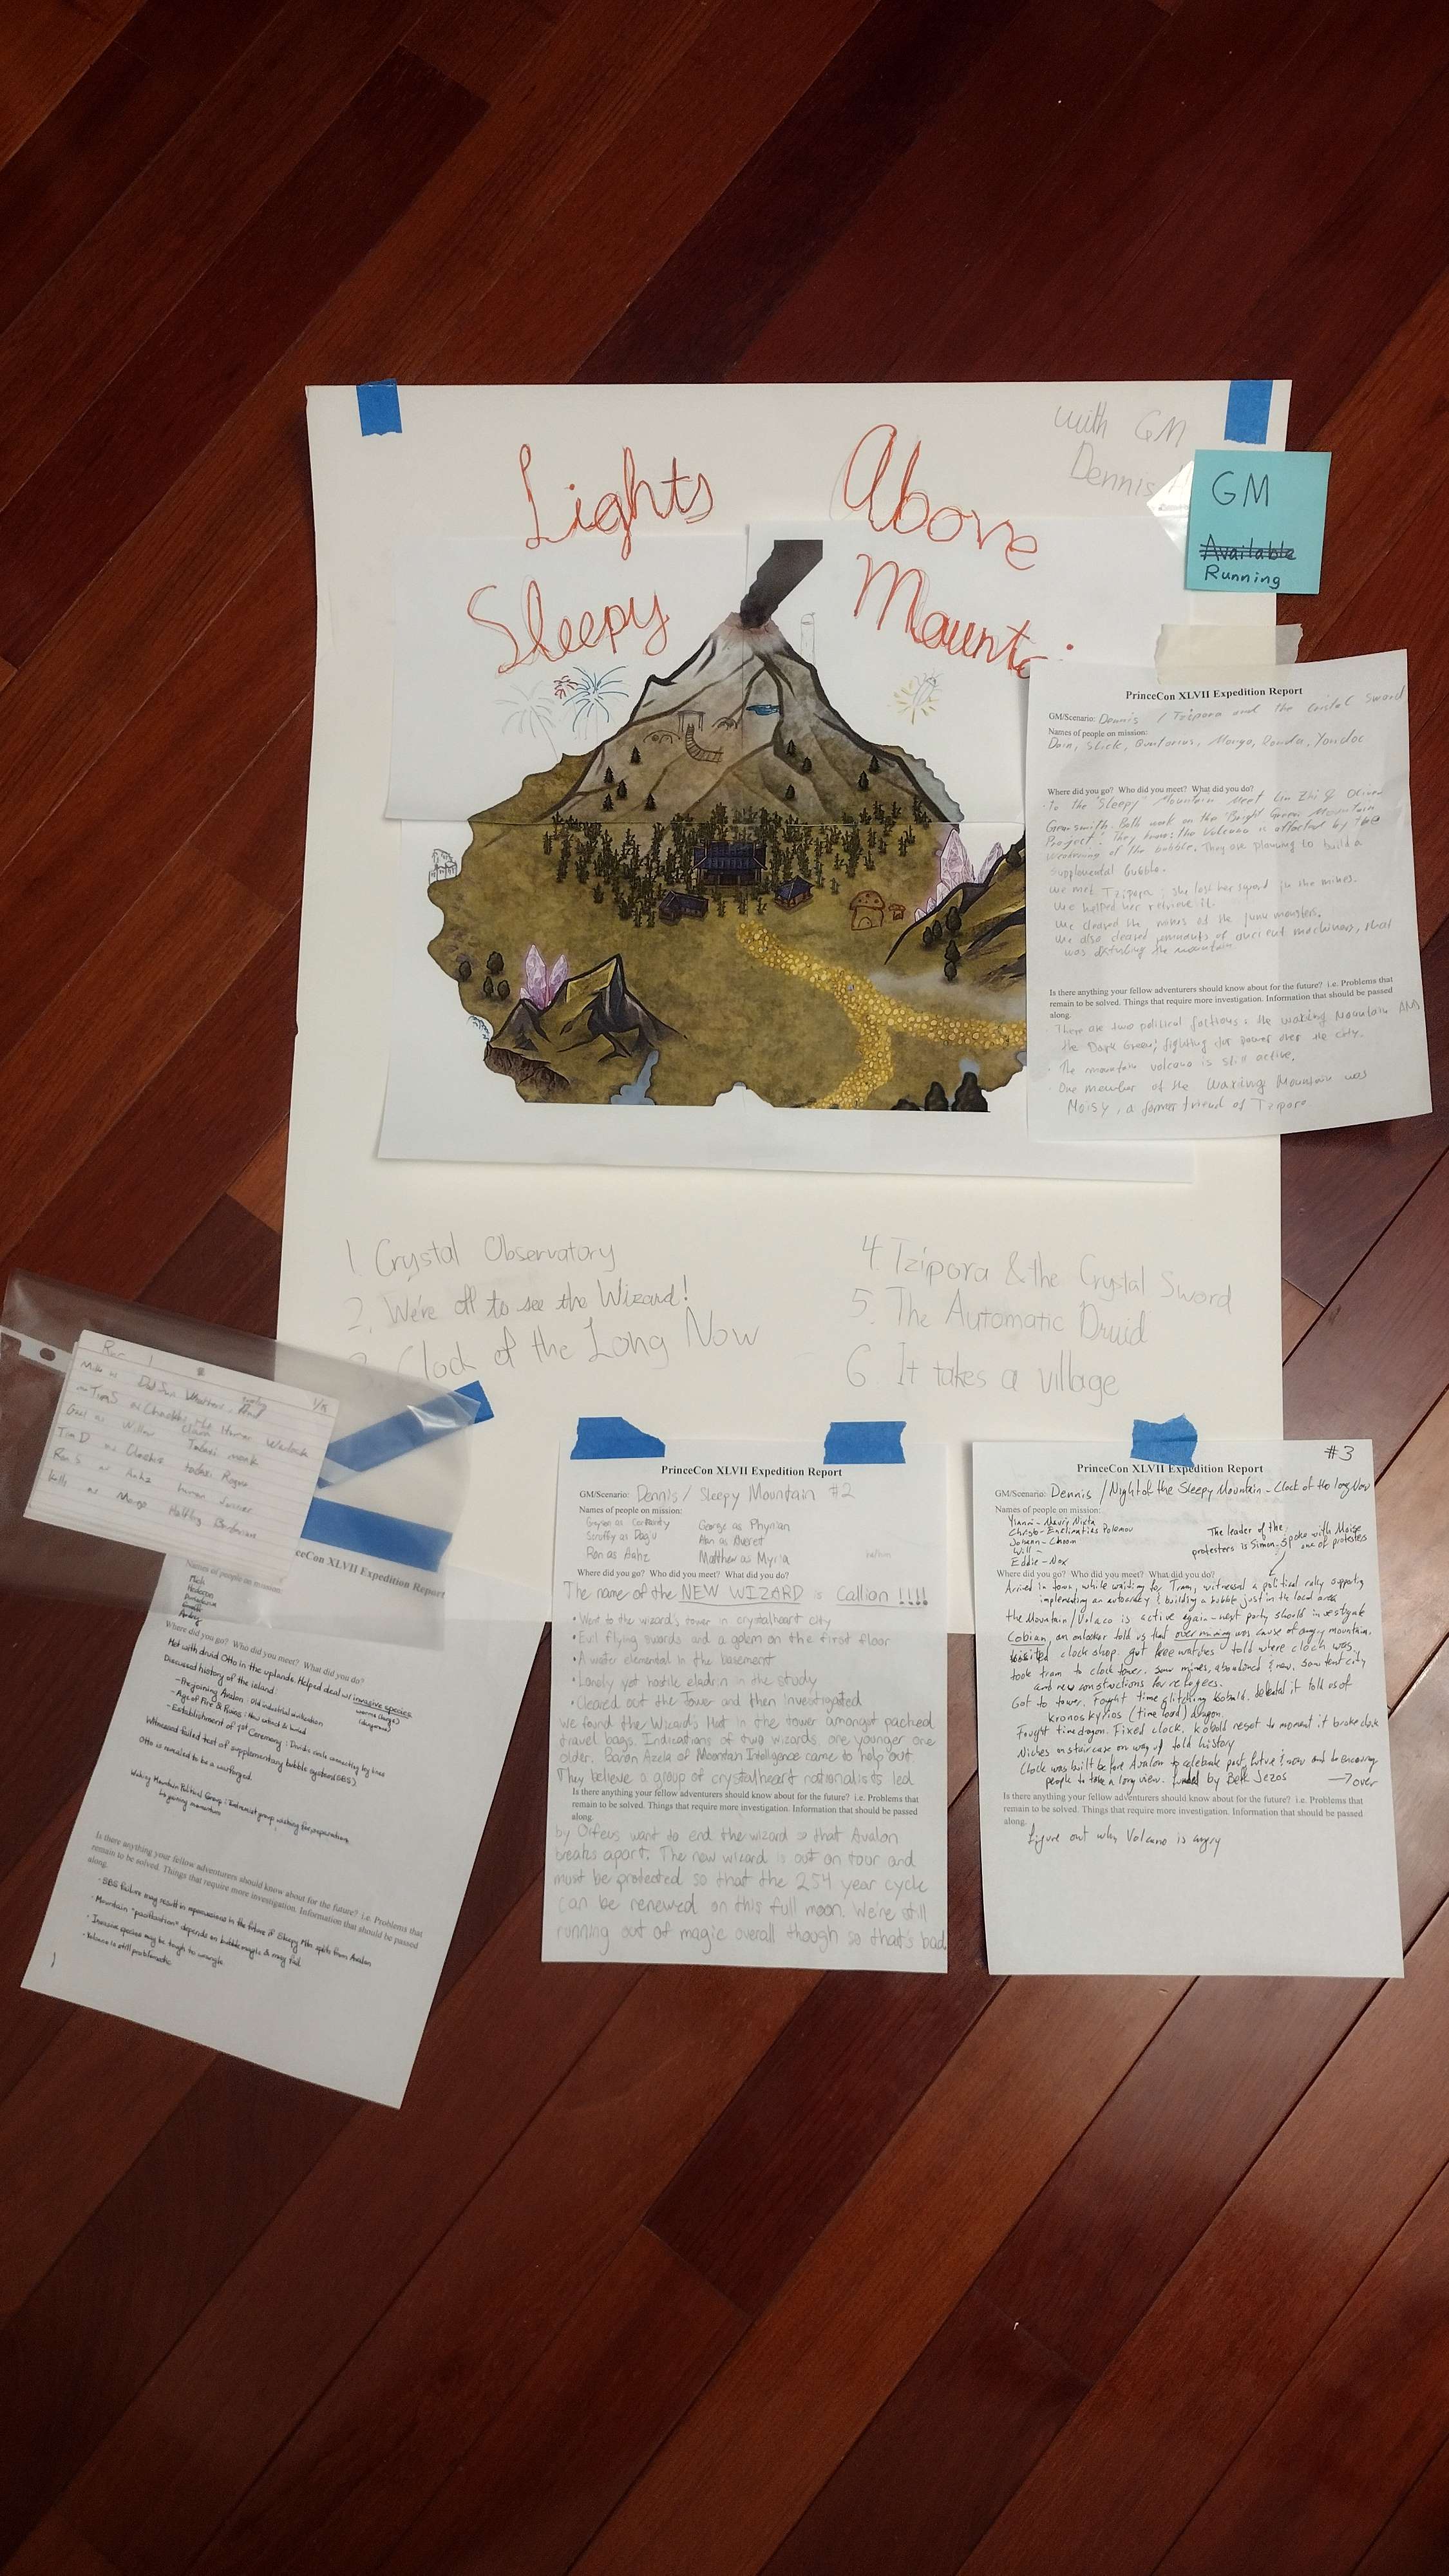 with GM
Dennis
Lights Above
Sleepy Mountai
GM
Available
Running
PrinceCon XLVII Expedition Report
GM/Scenario: Dennis / Tzipora and the Cristal Sword
Names of people on mission:
Dain, Slick, Mongo,
Where did you go? Who did you meet? What did you do?
To the "Sleepy" Mountain Meet Lin Zhi &
Gemsmith. Both work on the "Bright Green Mountain
Project". They know: the Volcano is affected by the
weakening of the bubble. They are planning to build a
supplemental bubble.
we met Tzipora; she lost her sword in the mines.
We helped her retrieve it.
We cleared the mines of the junk monsters.
We also cleared remnants of ancient machinery, that
was disturbing the mountain
Is there anything your fellow adventurers should know about for the future? i.e. Problems that
remain to be solved. Things that require more investigation. Information that should be passed
along.
There are two political factions: the Waking Mountain AND
the Dark Green; fighting for power over the city.
The mountain volcano is still active.
One member of the Waking Mountain was
Moisy, a former friend of Tzipora
1. Crystal Observatory
2. We're off to see the Wizard!
Clock of the Long Now
4. Tzipora & the Crystal Sword
5. The Automatic Druid
6. It takes a village
Run 1
Gail as Willow Tabaxi monk
Tim D as
Ron S as Aahz human
Kelly as Margo Halfling Barbarian
nceCon XLVII Expedition Report
Names of people on mission:
Where did you go? Who did you meet? What did you do?
Met with druid Otto in the uplands. Helped deal w/ invasive species
Discussed history of the island:
- Pre-joining Avalon: Old industrial civilization
- Age of Fire & Ruins:
- Establishment of 1st Ceremony:
Witnessed failed test of supplementary bubble system (SBS)
Otto is revealed to be a warforged.
Waking Mountain Political Group: Extremist group wishing for separation
Is there anything your fellow adventurers should know about for the future? i.e. Problems that
remain to be solved. Things that require more investigation. Information that should be passed
along.
- SBS failure may result in repercussions in the future if Sleepy Mtn splits from Avalon
- Mountain "pacification" depends on bubble magic & may fail
- Invasive species may be tough to wrangle
- Volcano is still problematic
PrinceCon XLVII Expedition Report
GM/Scenario: Dennis / Sleepy Mountain #2
Names of people on mission:
Grayson as Certainty George as Phynian
Scruffy as Dagu Alan as Averet
Ron as Aahz Matthew as Myria
Where did you go? Who did you meet? What did you do?
The name of the NEW WIZARD is Callion !!!!
• Went to the wizard's tower in crystalheart city
• Evil flying swords and a golem on the first floor
• A water elemental in the basement
• Lonely yet hostile eladrin in the study
• Cleared out the Tower and then investigated
We found the Wizard's Hat in the tower amongst packed
travel bags. Indications of two wizards, one younger one
older. Baron Azela of Mountain Intelligence came to help out.
They believe a group of crystalheart nationalists led
Is there anything your fellow adventurers should know about for the future? i.e. Problems that
remain to be solved. Things that require more investigation. Information that should be passed
along.
by Orfeus want to end the wizard so that Avalon
breaks apart. The new wizard is out on tour and
must be protected so that the 254 year cycle
can be renewed on this full moon. We're still
running out of magic overall though so that's bad.
#3
PrinceCon XLVII Expedition Report
GM/Scenario: Dennis / Night of the Sleepy Mountain - Clock of the long Now
Names of people on mission:
Christo - Polemou
Johann -
Will -
Eddie - Nox
The leader of the
protesters is Simon. Spoke with Moise
one of protesters
Where did you go? Who did you meet? What did you do?
Arrived in town, while waiting for Tram, witnessed a political rally supporting
implementing an autocracy & building a bubble just in the local area
the Mountain/Volaco is active again - next party should investigate
Cobian, an onlooker told us that over mining was cause of angry mountain.
visited clock shop, got free watches told where clock was.
took tram to clock tower. saw mines, abandoned & new. Saw tent city
and new constructions for refugees.
Got to tower. Fought time glitching kobold. defeated it told us of
kronoskyrios (time lord) dragon.
Fought time dragon. Fixed clock. kobold reset to moment it broke clock
Niches on staircase on way up told history
Clock was built before Avalon to celebrate past, future & now and to encourage
people to take a long view. funded by Beff Jezos → over
Is there anything your fellow adventurers should know about for the future? i.e. Problems that
remain to be solved. Things that require more investigation. Information that should be passed
along.
Figure out why Volcano is angry